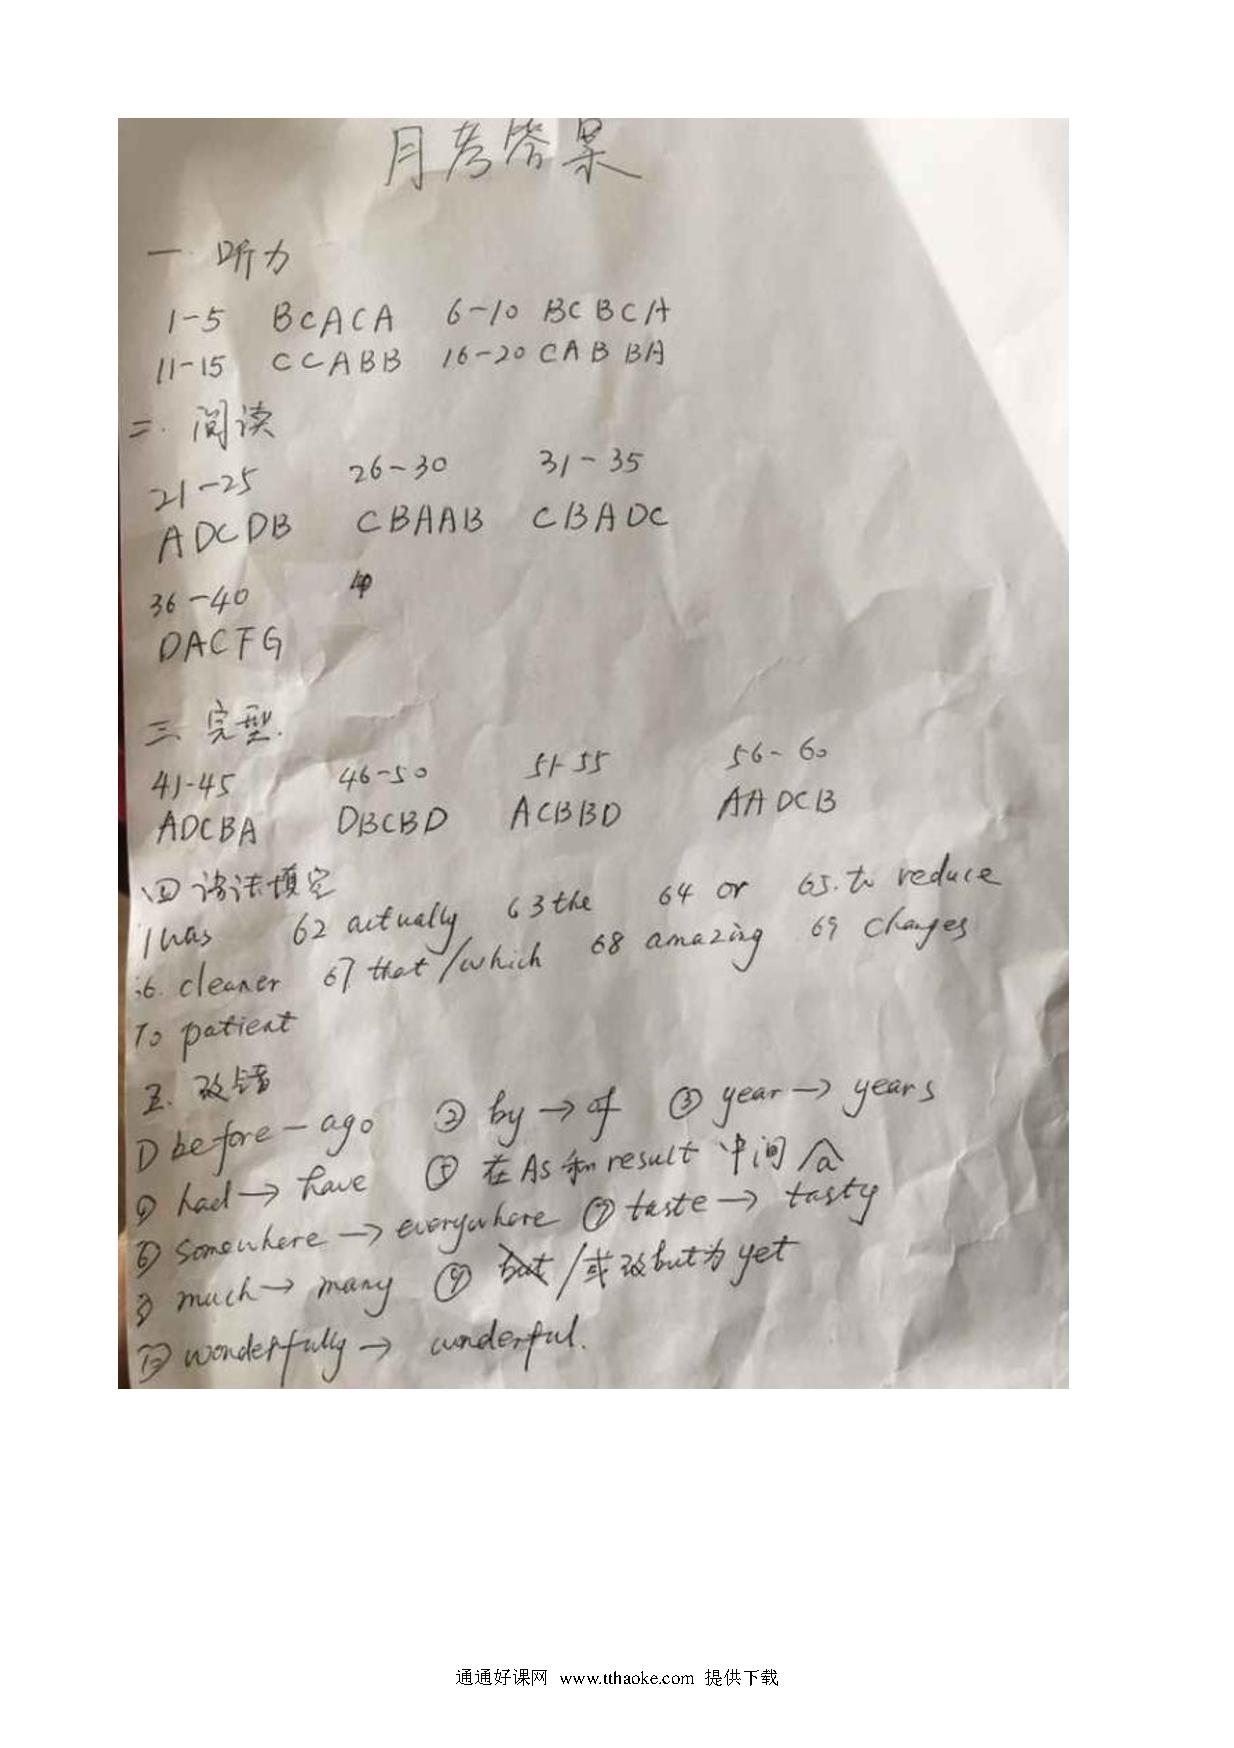 月考答案
一. 听力
1-5 BCACA 6-10 BCBCA
11-15 CCABB 16-20 CABBA
二. 阅读
21-25 26-30 31-35
ADCDB CBAAB CBADC
36-40
DACFG
三 完型.
41-45 46-50 51-55 56-60
ADCBA DBCBD ACBBD AADCB
四 语法填空
1 was 62 actually 63 the 64 or 65. to reduce
6. cleaner 67 that/which 68 amazing 69 changes
70 patient
五. 改错
① before - ago ② by → of ③ year → years
④ had → have ⑤ 在As和result 中间 ∧a
⑥ somewhere → everywhere ⑦ taste → tasty
⑧ much → many ⑨ but /或改but为yet
⑩ wonderfully → wonderful.
通通好课网 www.tthaoke.com 提供下载